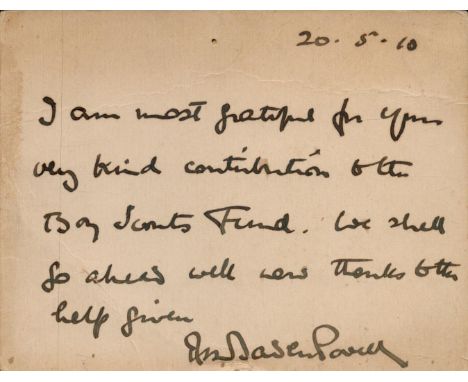 20. 5. 10
I am most grateful for your
very kind contribution to the
Boy Scouts Fund. We shall
go ahead well now thanks to the
help given
Baden Powell